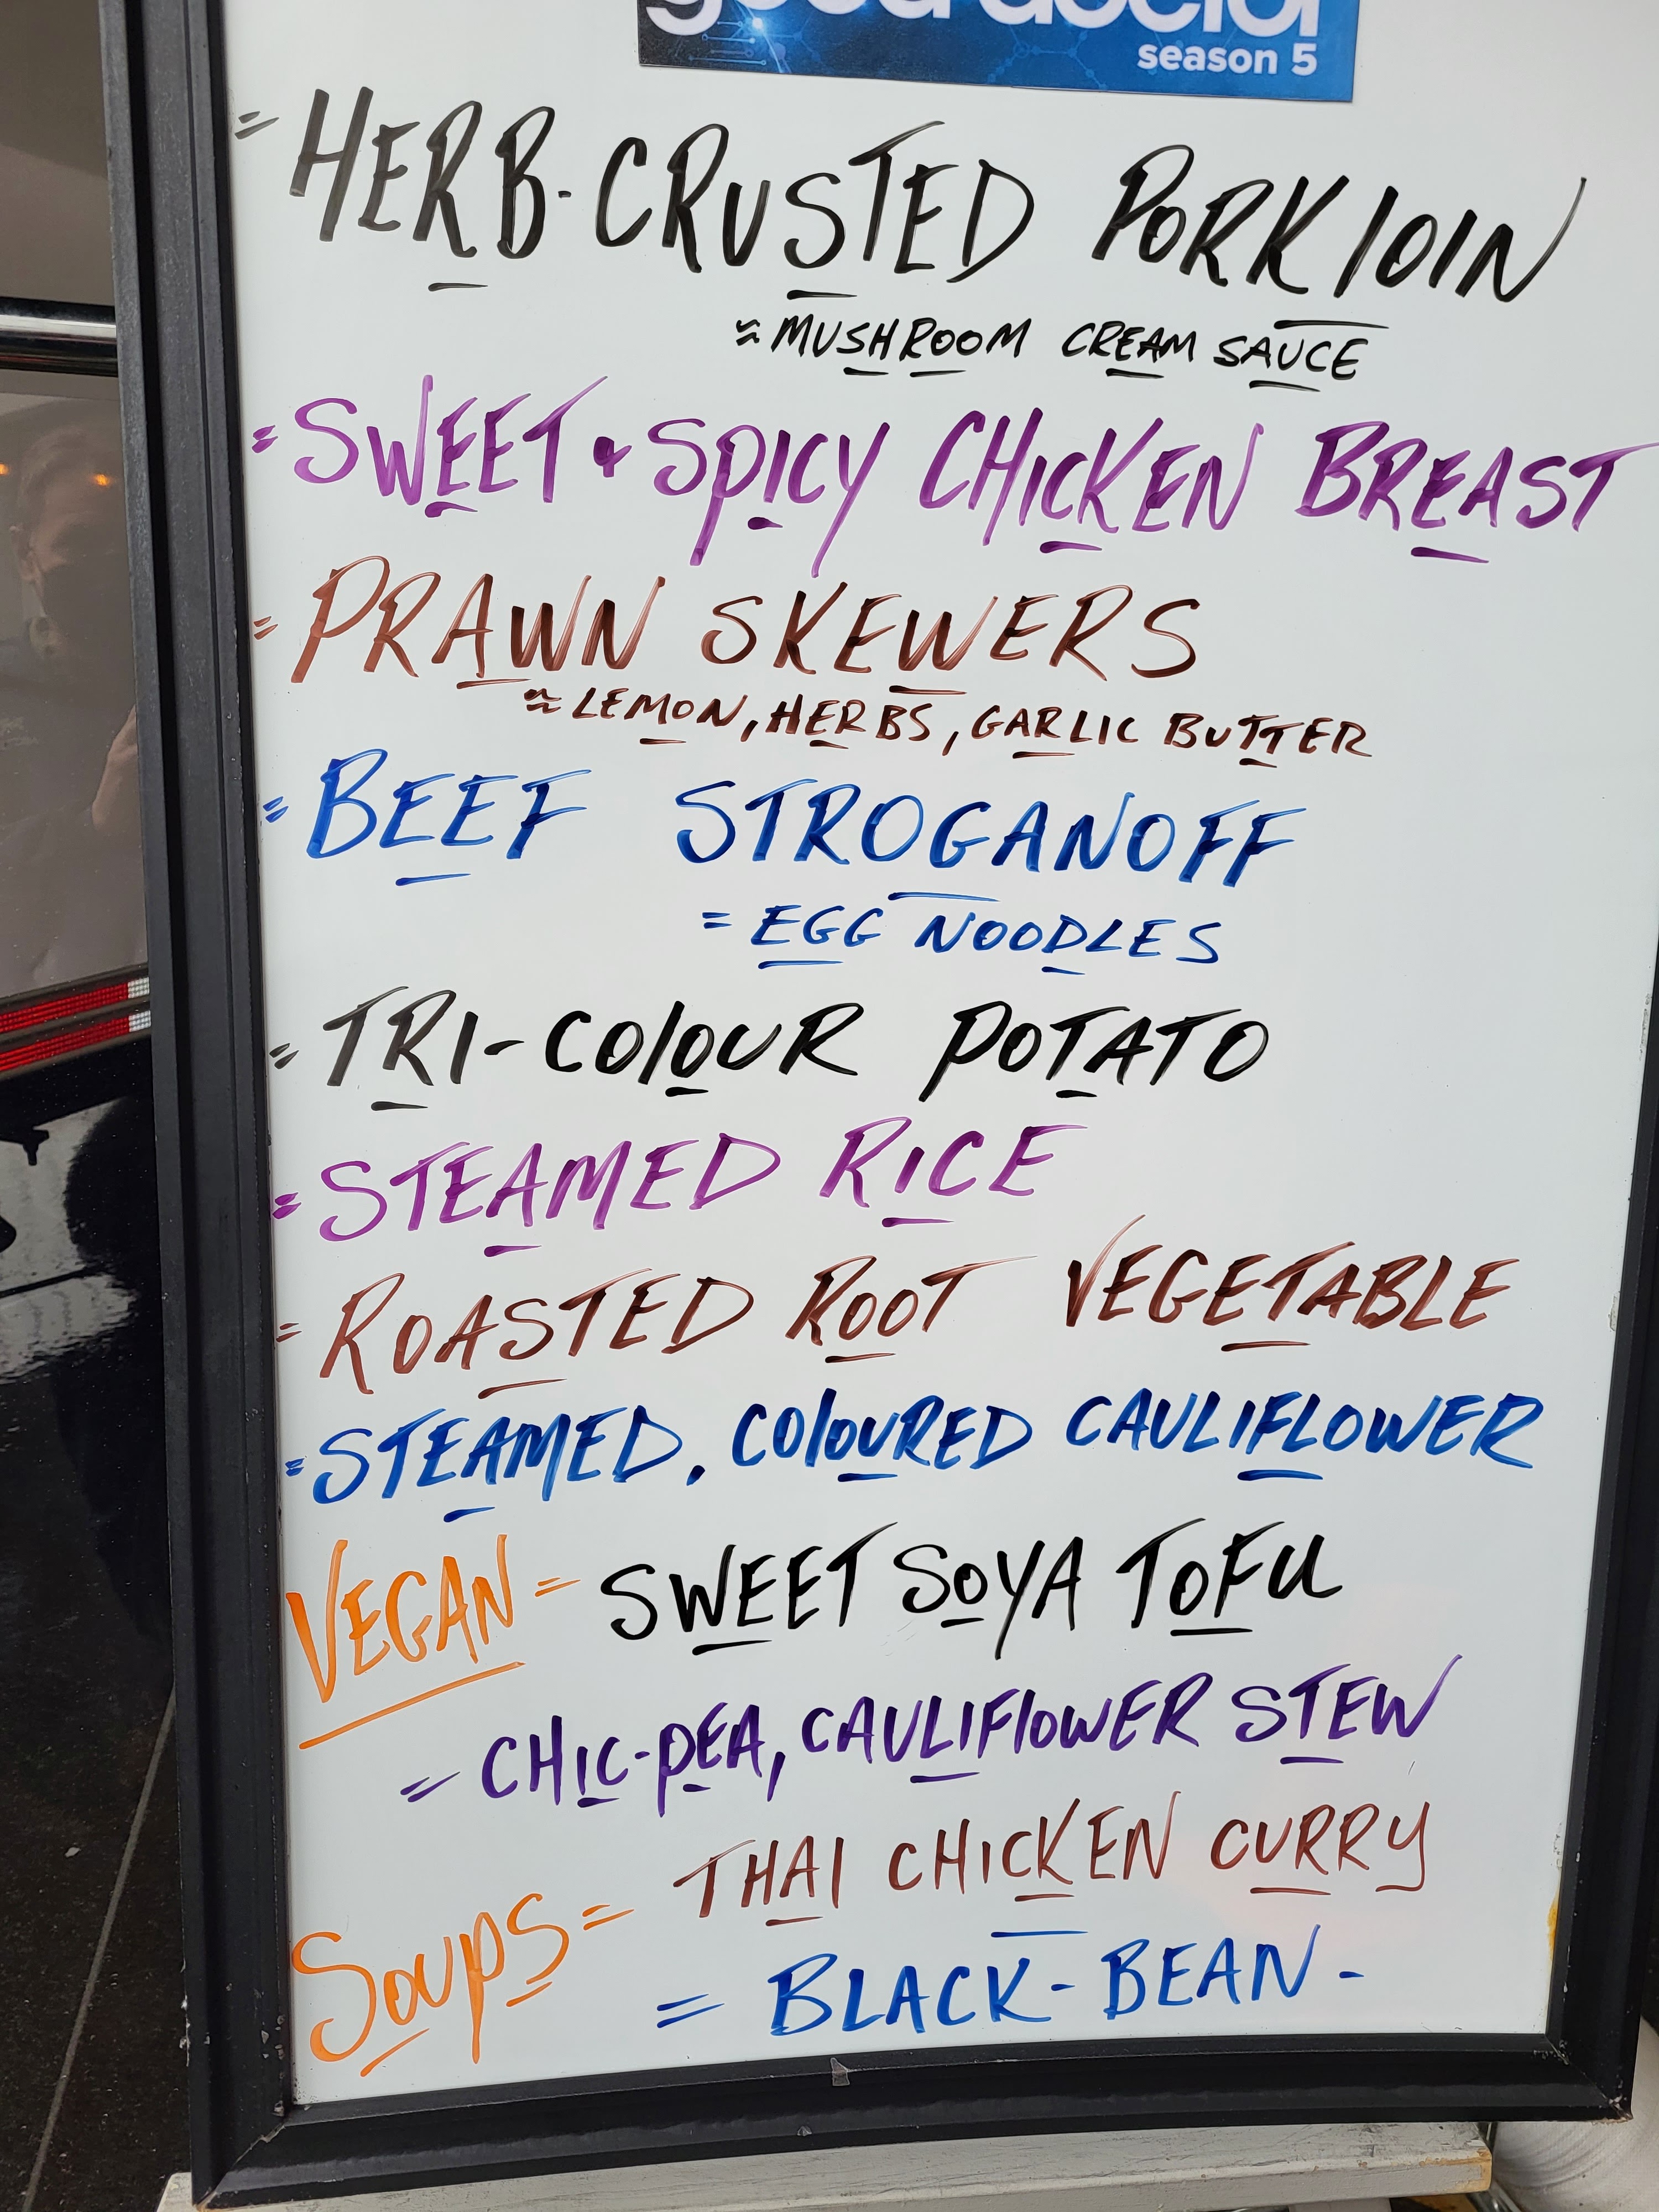 good doctor
season 5
= HERB-CRUSTED PORK lOIN
= MUSHROOM CREAM SAUCE
= SWEET & SPICY CHICKEN BREAST
= PRAWN SKEWERS
= LEMON, HERBS, GARLIC BUTTER
= BEEF STROGANOFF
= EGG NOODLES
= TRI-COlOUR POTATO
= STEAMED RICE
= ROASTED ROOT VEGETABLE
= STEAMED. COlOURED CAULIFLOWER
VEGAN = SWEET SOYA TOFU
= CHIC-PEA, CAULIFlOWER STEW
Soups = THAI CHICKEN CURRY
= BLACK-BEAN-